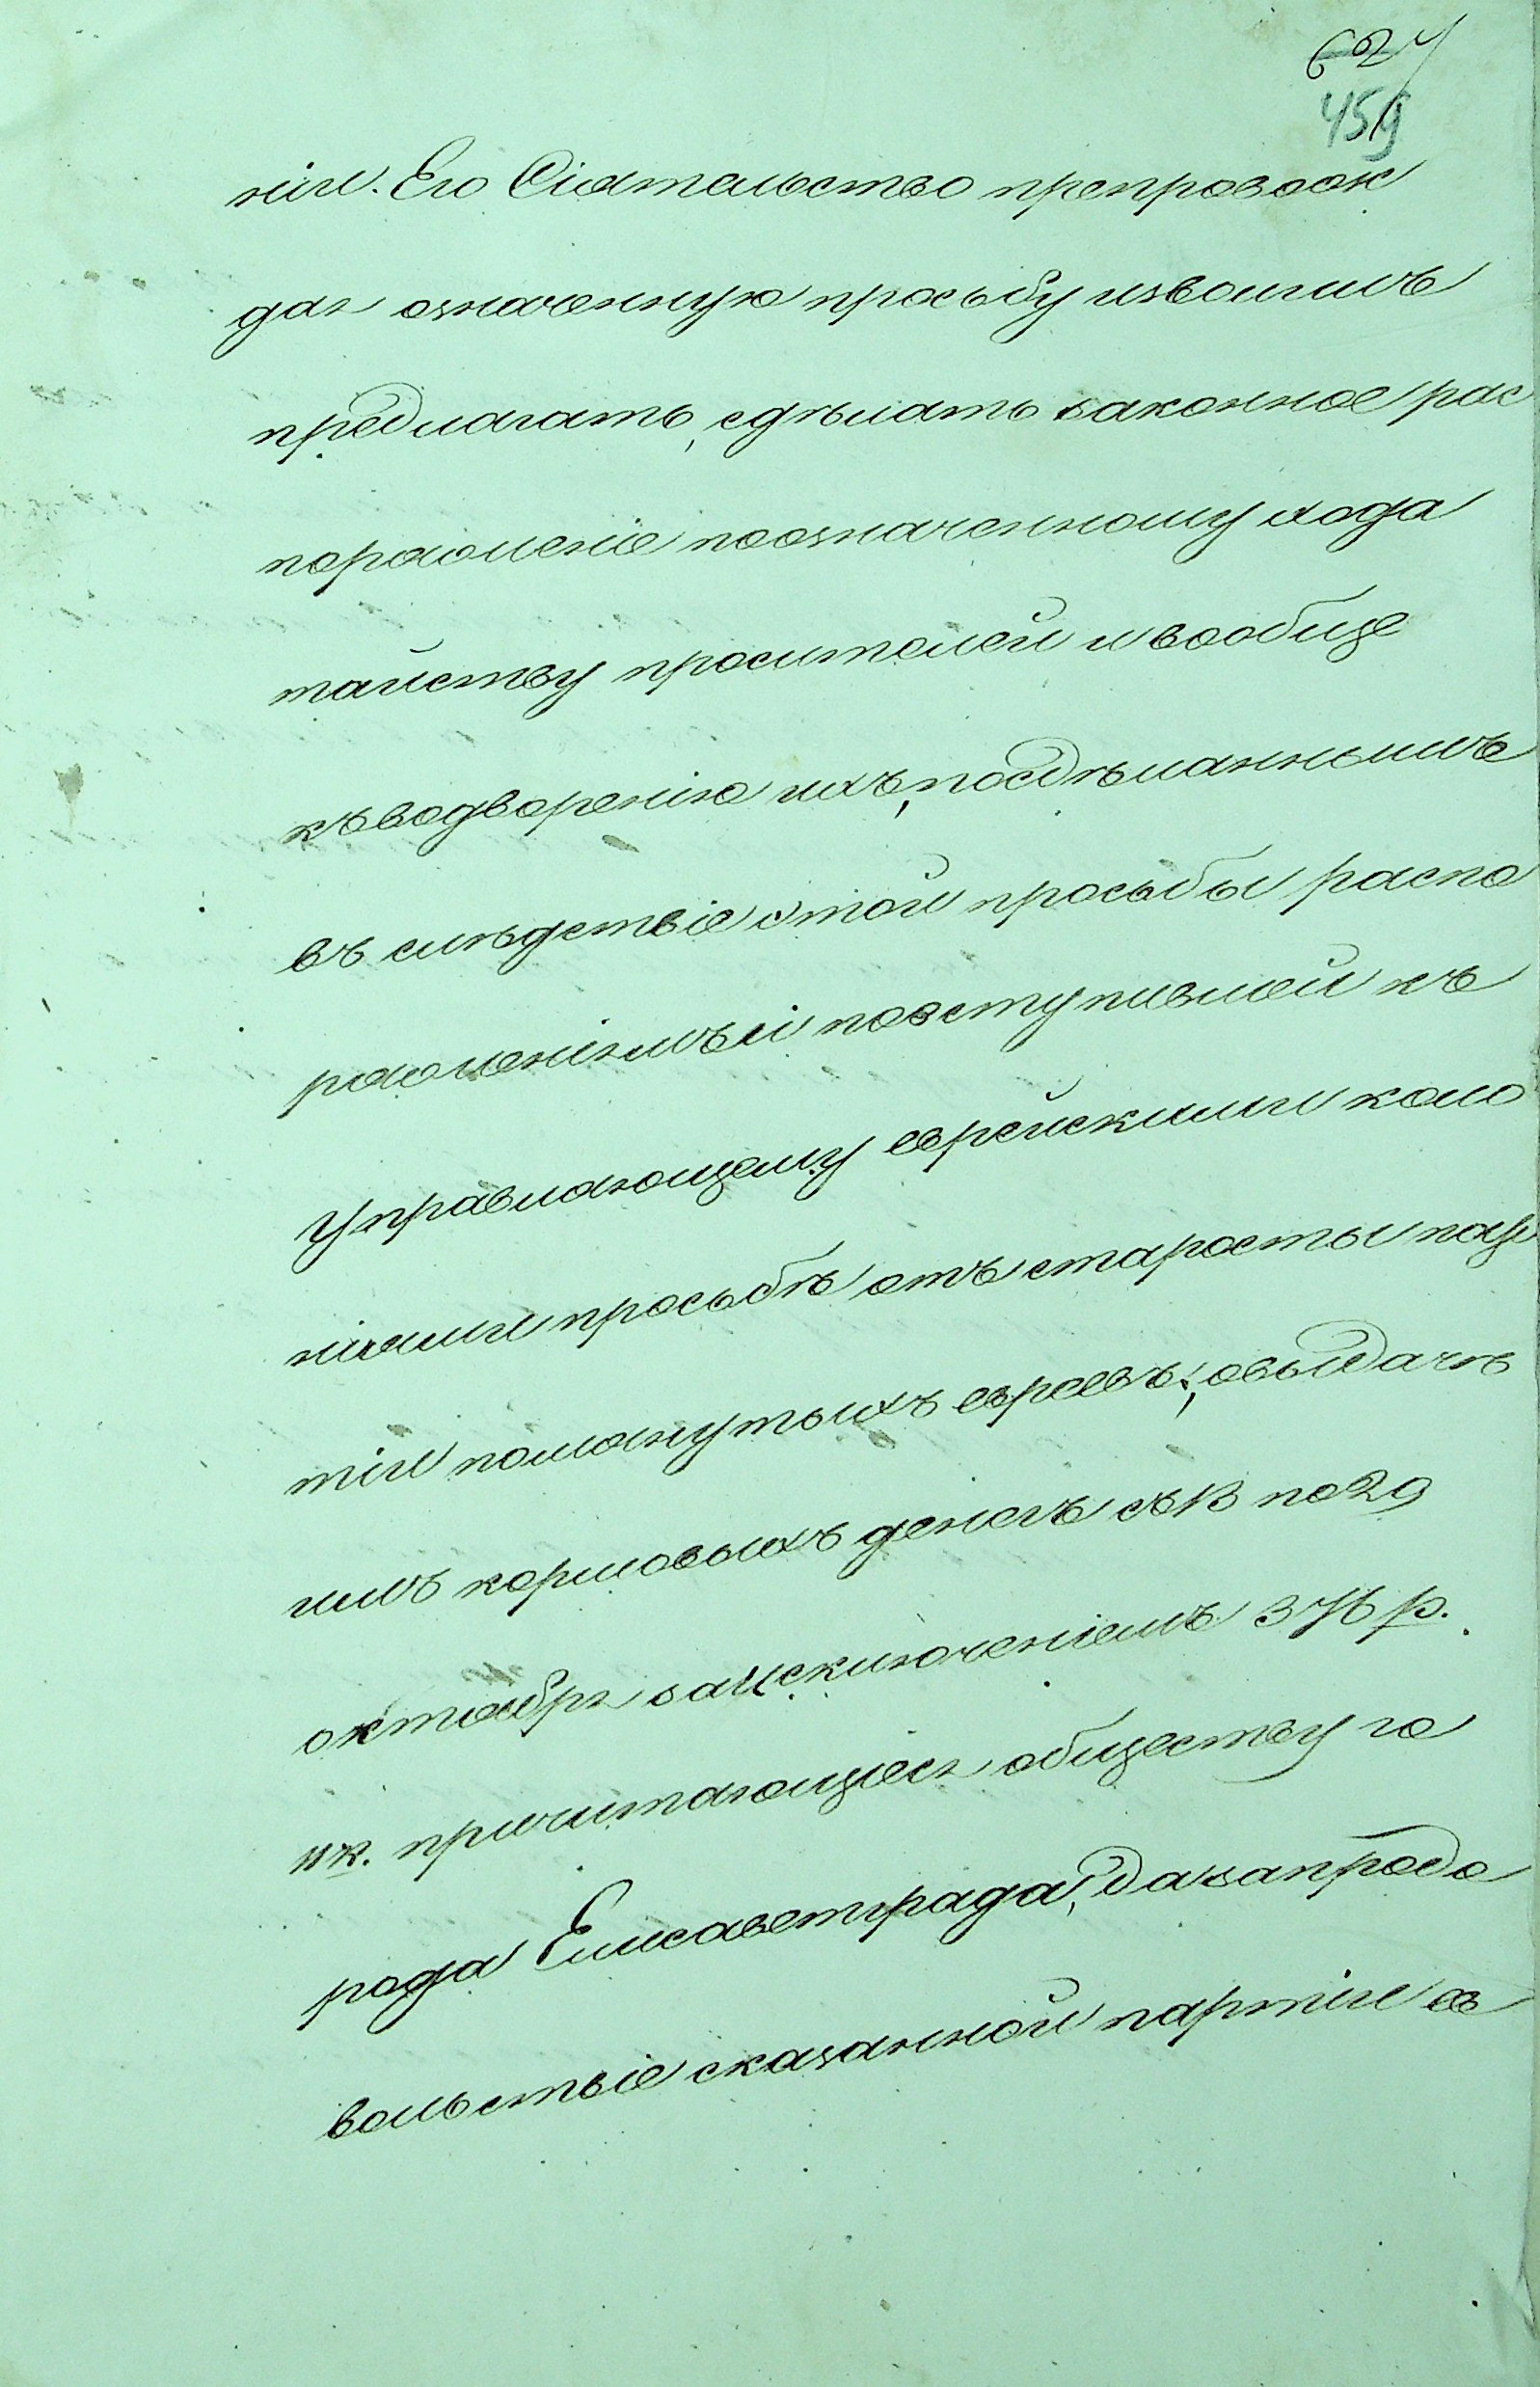 624
459
нія. Его Сіятельство препровож
дая означенную просьбу изволитъ
предлагать, сдѣлать законное рас
поряженіе поозначенному хода
тайству просителей и вообще
къ водворенію ихъ, посдѣланнымъ
въ слѣдствіе этой просьбы распо
ряженіямъ и поступившей къ
Управляющему еврейскими коло
ніями просьбѣ отъ старосты пар
тіи помянутыхъ евреевъ, овыдачѣ
имъ кормовыхъ денегъ съ 13 по 29
октября заисключеніемъ 376 р.
11 к. причитающіеся обществу го
рода Елисаветграда, да запродо
вольствіе сказанной партіи ев